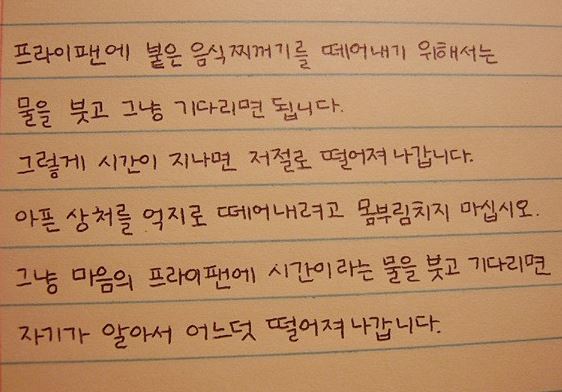 프라이팬에 붙은 음식찌꺼기를 떼어내기 위해서는
물을 붓고 그냥 기다리면 됩니다.
그렇게 시간이 지나면 저절로 떨어져 나갑니다.
아픈 상처를 억지로 떼어내려고 몸부림치지 마십시오.
그냥 마음의 프라이팬에 시간이라는 물을 붓고 기다리면
자기가 알아서 어느덧 떨어져 나갑니다.